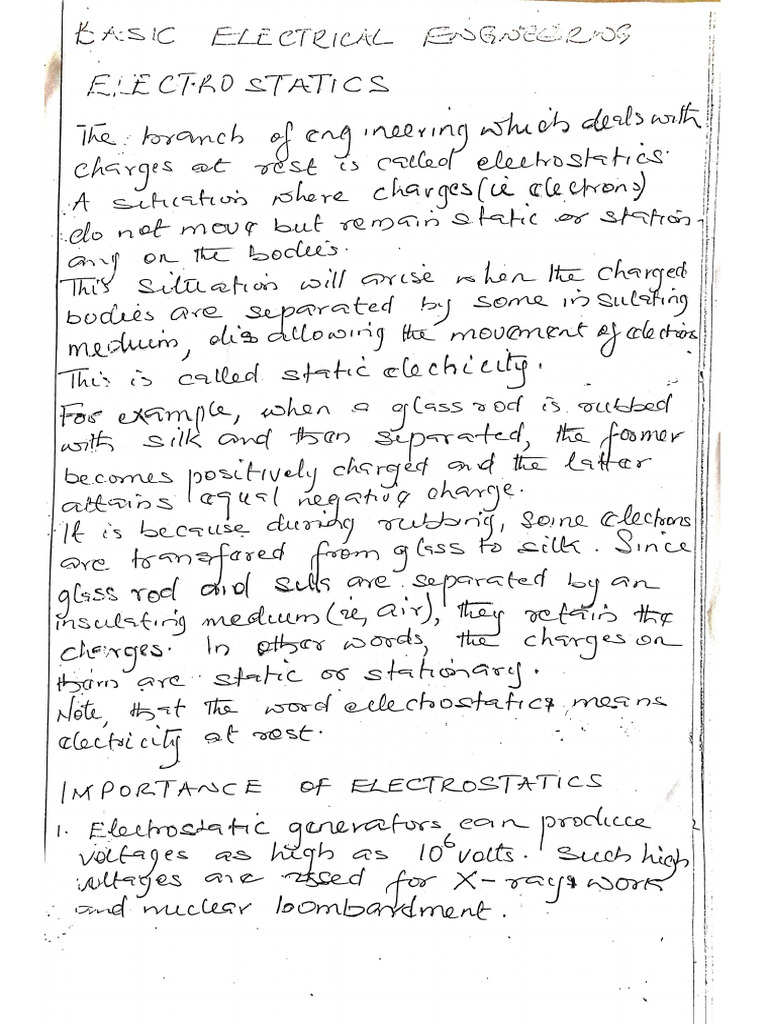 BASIC ELECTRICAL ENGINEERING
ELECTROSTATICS
The branch of engineering which deals with
charges at rest is called electrostatics.
A situation where charges (ie electrons)
do not move but remain static or station-
ary on the bodies.
This situation will arise when the charged
bodies are separated by some insulating
medium, disallowing the movement of electrons
This is called static electricity.
For example, when a glass rod is rubbed
with silk and then separated, the former
becomes positively charged and the latter
attains equal negative charge.
It is because during rubbing, some electrons
are transfared from glass to silk. Since
glass rod and silk are separated by an
insulating medium (ie, air), they retain the
charges. In other words, the charges on
them are static or stationary.
Note, that the word electrostatics means
electricity at rest.
IMPORTANCE OF ELECTROSTATICS
1. Electrostatic generators can produce
voltages as high as 10⁶ volts. Such high
voltages are used for X-rays work
and nuclear bombardment.